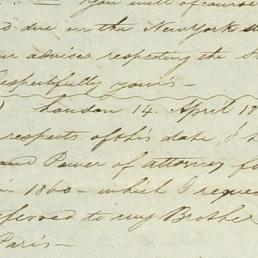 You will of course
due in the New York
advises respecting the
Respectfully yours—
London 14. April 18
respects of this date, I
and Power of attorney fo
in 1860— which I reque
ferred to my Brother
Paris—